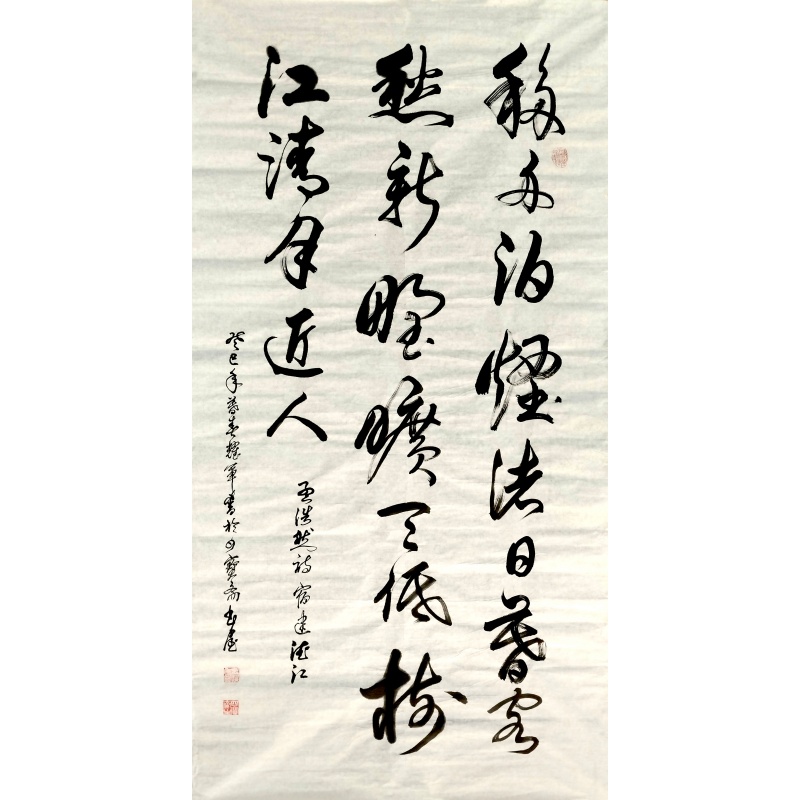 移舟泊煙渚日暮客
愁新野曠天低樹
江清月近人
孟浩然詩宿建德江
癸巳年暮春耀軍書於
寶斋